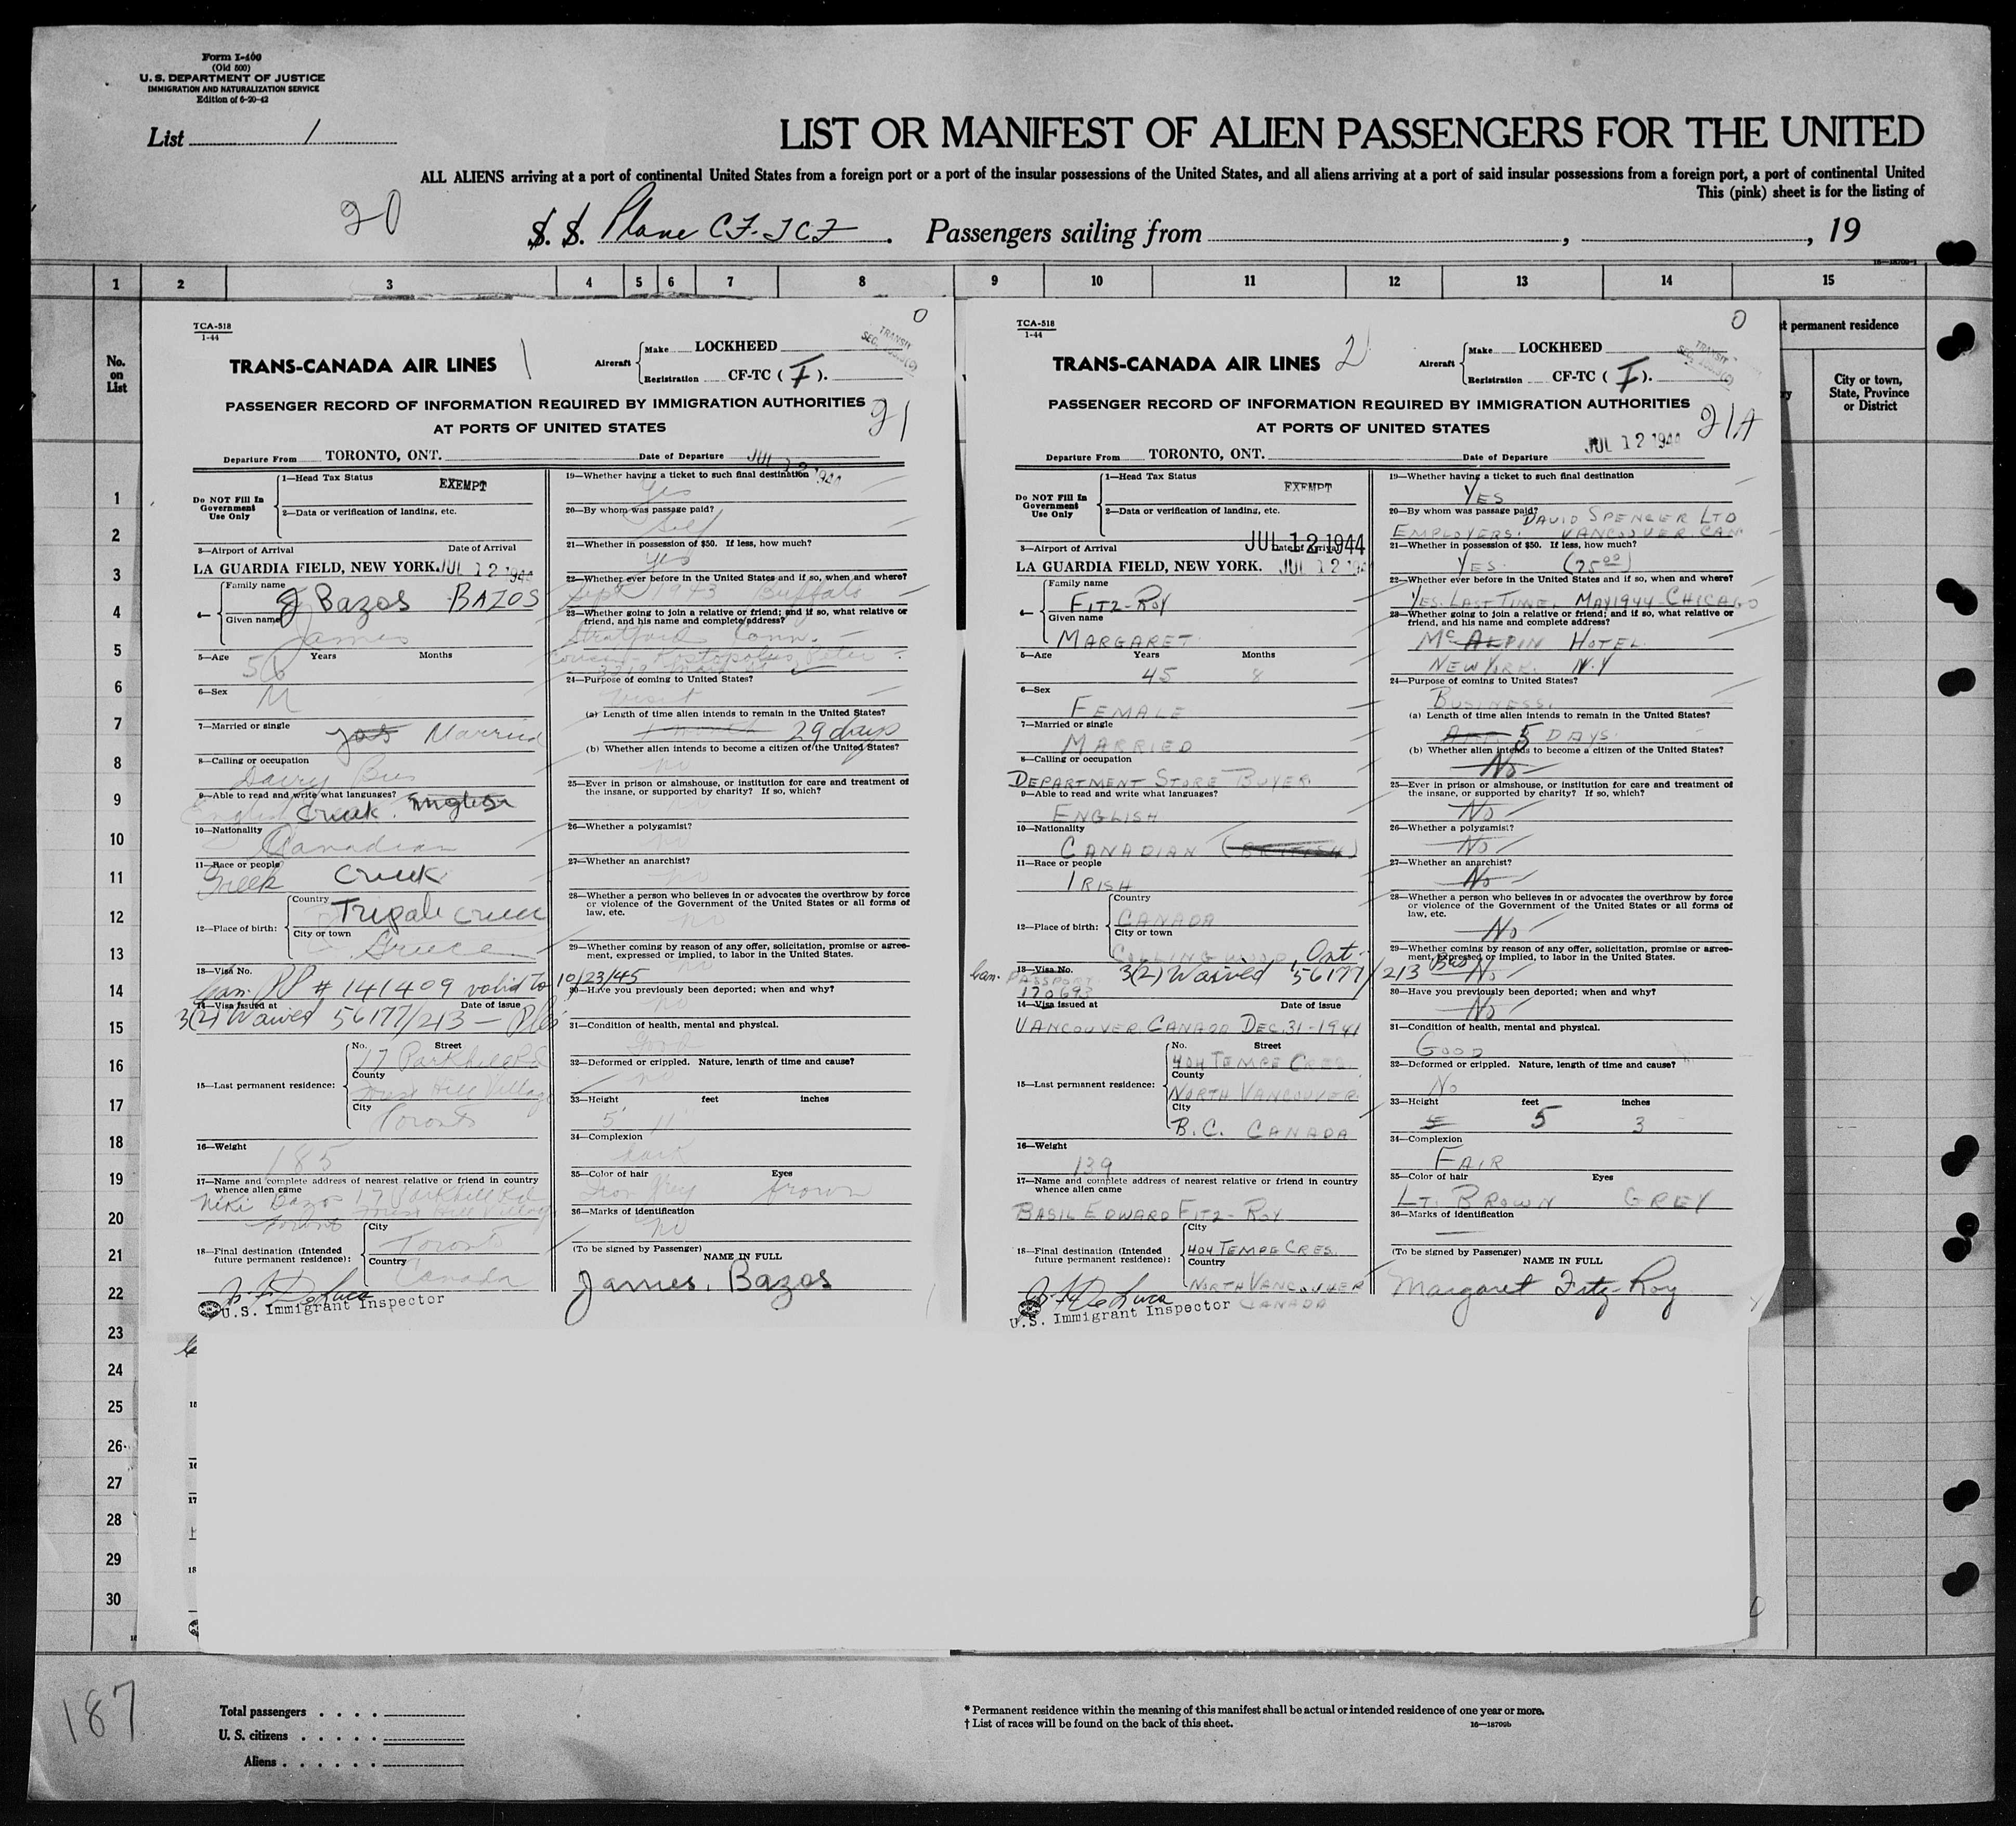 Form I-400
(Old 500)
U. S. DEPARTMENT OF JUSTICE
IMMIGRATION AND NATURALIZATION SERVICE
Edition of 6-20-42
List 1
LIST OR MANIFEST OF ALIEN PASSENGERS FOR THE UNITED
ALL ALIENS arriving at a port of continental United States from a foreign port or a port of the insular possessions of the United States, and all aliens arriving at a port of said insular possessions from a foreign port, a port of continental United
This (pink) sheet is for the listing of
20
S. S. Plane CF-TCF. Passengers sailing from , , 19
1 2 3 4 5 6 7 8 9 10 11 12 13 14 15
No. on List
t permanent residence
City or town, State, Province or District
1
2
3
4
5
6
7
8
9
10
11
12
13
14
15
16
17
18
19
20
21
22
23
24
25
26
27
28
29
30
TCA-518
1-44
0
TRANS-CANADA AIR LINES 1
Aircraft
Make LOCKHEED
Registration CF-TC ( F ).
TRANSIT
PASSENGER RECORD OF INFORMATION REQUIRED BY IMMIGRATION AUTHORITIES
AT PORTS OF UNITED STATES
21
Departure From TORONTO, ONT. Date of Departure JUL 12 1944
Do NOT Fill In Government Use Only
1—Head Tax Status EXEMPT
2—Data or verification of landing, etc.
3—Airport of Arrival Date of Arrival
LA GUARDIA FIELD, NEW YORK. JUL 12 1944
4—
Family name
J Bazos BAZOS
Given name
James
5—Age Years Months
56
6—Sex
M
7—Married or single
yes Married
8—Calling or occupation
Dairy Bus
9—Able to read and write what languages?
English Greek. English
10—Nationality
Canadian
11—Race or people
Greek Greek
12—Place of birth:
Country
City or town
Greece
13—Visa No.
Can. PP # 141409 valid to 10/23/45
14—Visa issued at Date of issue
3(2) Waived 56177/213 —
15—Last permanent residence:
No. Street
17 Parkhill Rd
County
Forest Hill Village
City
Toronto
16—Weight
185
17—Name and complete address of nearest relative or friend in country
whence alien came
Niki Bazos 17 Parkhill Rd
Toronto Forest Hill Village
18—Final destination (Intended
future permanent residence):
City
Toronto
Country
Canada
U.S. Immigrant Inspector
19—Whether having a ticket to such final destination
Yes
20—By whom was passage paid?
Self
21—Whether in possession of $50. If less, how much?
Yes
22—Whether ever before in the United States and if so, when and where?
Sept 1943 Buffalo
23—Whether going to join a relative or friend; and if so, what relative or
friend, and his name and complete address?
Stratford Conn.
Cousin - Kostopolus, Peter
24—Purpose of coming to United States?
Visit
(a) Length of time alien intends to remain in the United States?
1 month 29 days
(b) Whether alien intends to become a citizen of the United States?
no
25—Ever in prison or almshouse, or institution for care and treatment of
the insane, or supported by charity? If so, which?
no
26—Whether a polygamist?
no
27—Whether an anarchist?
no
28—Whether a person who believes in or advocates the overthrow by force
or violence of the Government of the United States or all forms of
law, etc.
no
29—Whether coming by reason of any offer, solicitation, promise or agree-
ment, expressed or implied, to labor in the United States.
no
30—Have you previously been deported; when and why?
no
31—Condition of health, mental and physical.
good
32—Deformed or crippled. Nature, length of time and cause?
no
33—Height feet inches
5' 11
34—Complexion
dark
35—Color of hair Eyes
Iron Grey brown
36—Marks of identification
no
(To be signed by Passenger)
NAME IN FULL
James. Bazos
TCA-518
1-44
0
TRANS-CANADA AIR LINES 2
Aircraft
Make LOCKHEED
Registration CF-TC ( F ).
TRANSIT
PASSENGER RECORD OF INFORMATION REQUIRED BY IMMIGRATION AUTHORITIES
AT PORTS OF UNITED STATES
21A
Departure From TORONTO, ONT. Date of Departure JUL 12 1944
Do NOT Fill In Government Use Only
1—Head Tax Status EXEMPT
2—Data or verification of landing, etc.
JUL 12 1944
3—Airport of Arrival Date of Arrival
LA GUARDIA FIELD, NEW YORK. JUL 12 1944
4—
Family name
FITZ-ROY
Given name
MARGARET
5—Age Years Months
45 8
6—Sex
FEMALE
7—Married or single
MARRIED
8—Calling or occupation
DEPARTMENT STORE BUYER
9—Able to read and write what languages?
ENGLISH
10—Nationality
CANADIAN (BRITISH)
11—Race or people
IRISH
12—Place of birth:
Country
CANADA
City or town
COLLINGWOOD Ont.
13—Visa No.
Can. PASSPORT 3(2) Waived 56177/213 Bus
14—Visa issued at Date of issue
VANCOUVER. CANADA DEC. 31-1941
15—Last permanent residence:
No. Street
404 TEMPE CRES.
County
NORTH VANCOUVER.
City
B.C. CANADA
16—Weight
139
17—Name and complete address of nearest relative or friend in country
whence alien came
BASIL EDWARD FITZ-ROY
18—Final destination (Intended
future permanent residence):
City
404 TEMPE CRES.
Country
NORTH VANCOUVER
CANADA
U.S. Immigrant Inspector
19—Whether having a ticket to such final destination
YES
20—By whom was passage paid?
DAVID SPENCER LTD
EMPLOYERS. VANCOUVER CAN
21—Whether in possession of $50. If less, how much?
YES. (25.00)
22—Whether ever before in the United States and if so, when and where?
YES. LAST TIME, MAY 1944-CHICAGO
23—Whether going to join a relative or friend; and if so, what relative or
friend, and his name and complete address?
McALPIN HOTEL.
NEW YORK. N.Y
24—Purpose of coming to United States?
BUSINESS.
(a) Length of time alien intends to remain in the United States?
5 DAYS.
(b) Whether alien intends to become a citizen of the United States?
No
25—Ever in prison or almshouse, or institution for care and treatment of
the insane, or supported by charity? If so, which?
No
26—Whether a polygamist?
No
27—Whether an anarchist?
No
28—Whether a person who believes in or advocates the overthrow by force
or violence of the Government of the United States or all forms of
law, etc.
No
29—Whether coming by reason of any offer, solicitation, promise or agree-
ment, expressed or implied, to labor in the United States.
No
30—Have you previously been deported; when and why?
No
31—Condition of health, mental and physical.
GOOD
32—Deformed or crippled. Nature, length of time and cause?
No
33—Height feet inches
5 5 3
34—Complexion
FAIR
35—Color of hair Eyes
LT. BROWN GREY
36—Marks of identification
—
(To be signed by Passenger)
NAME IN FULL
Margaret Fitz-Roy
187
Total passengers . . . .
U. S. citizens . . . . .
Aliens . . . . . .
* Permanent residence within the meaning of this manifest shall be actual or intended residence of one year or more.
† List of races will be found on the back of this sheet.
16—18709b